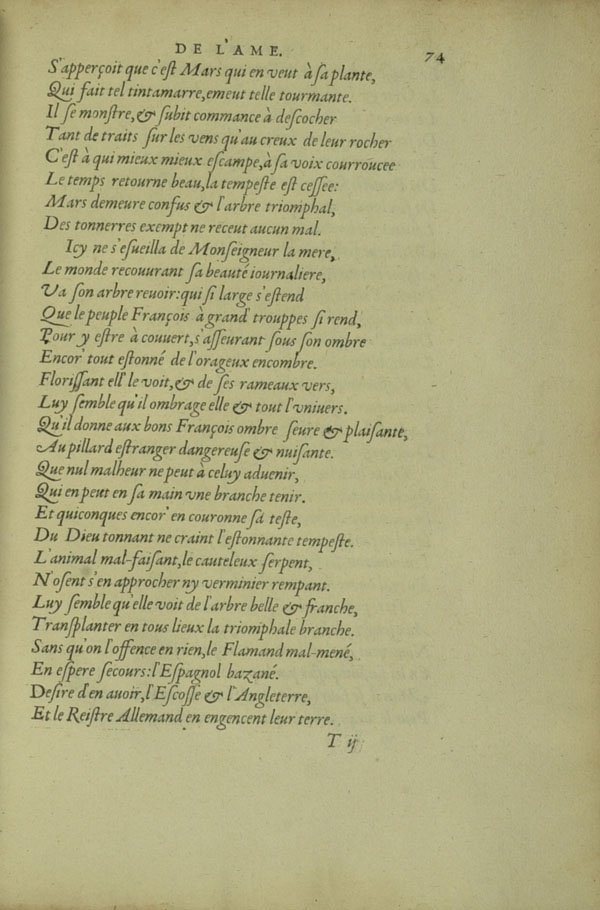 DE L'AME.
74
S'apperçoit que c'eſt Mars qui en veut à ſa plante,
Qui fait tel tintamarre, emeut telle tourmante.
Il ſe monſtre, & ſubit commance à deſcocher
Tant de traits ſur les vens qu'au creux de leur rocher
C'eſt à qui mieux mieux eſcampe, à ſa voix courroucee
Le temps retourne beau, la tempeſte eſt ceſſee:
Mars demeure confus & l'arbre triomphal,
Des tonnerres exempt ne receut aucun mal.
Icy ne s'eſueilla de Monſeigneur la mere,
Le monde recouurant ſa beauté iournaliere,
Va ſon arbre reuoir: qui ſi large s'eſtend
Que le peuple François à grand' trouppes ſi rend,
Pour y eſtre à couuert, s'aſſeurant ſous ſon ombre
Encor tout eſtonné de l'orageux encombre.
Floriſſant ell' le voit, & de ſes rameaux vers,
Luy ſemble qu'il ombrage elle & tout l'vniuers.
Qu'il donne aux bons François ombre ſeure & plaiſante,
Au pillard eſtranger dangereuſe & nuiſante.
Que nul malheur ne peut à celuy aduenir,
Qui en peut en ſa main vne branche tenir.
Et quiconques encor' en couronne ſa teſte,
Du Dieu tonnant ne craint l'eſtonnante tempeſte.
L'animal mal-faiſant, le cauteleux ſerpent,
N'oſent s'en approcher ny verminier rempant.
Luy ſemble qu'elle voit de l'arbre belle & franche,
Tranſplanter en tous lieux la triomphale branche.
Sans qu'on l'offence en rien, le Flamand mal-mené,
En eſpere ſecours: l'Eſpagnol bazané.
Deſire d'en auoir, l'Eſcoſſe & l'Angleterre,
Et le Reiſtre Allemand en engencent leur terre.
T ij